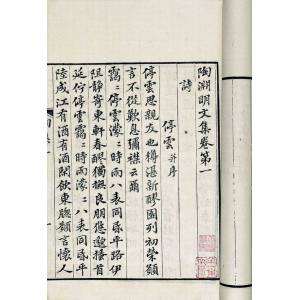 陶淵明文集卷第一
詩
停雲 并序
停雲思親友也樽湛新醪園列初榮願
言不從歎息彌襟云爾
靄〻停雲濛〻時雨八表同昏平路伊
阻靜寄東軒春醪獨撫良朋悠邈搔首
延佇停雲靄〻時雨濛〻八表同昏平
陸成江有酒有酒閒飲東牕願言懷人